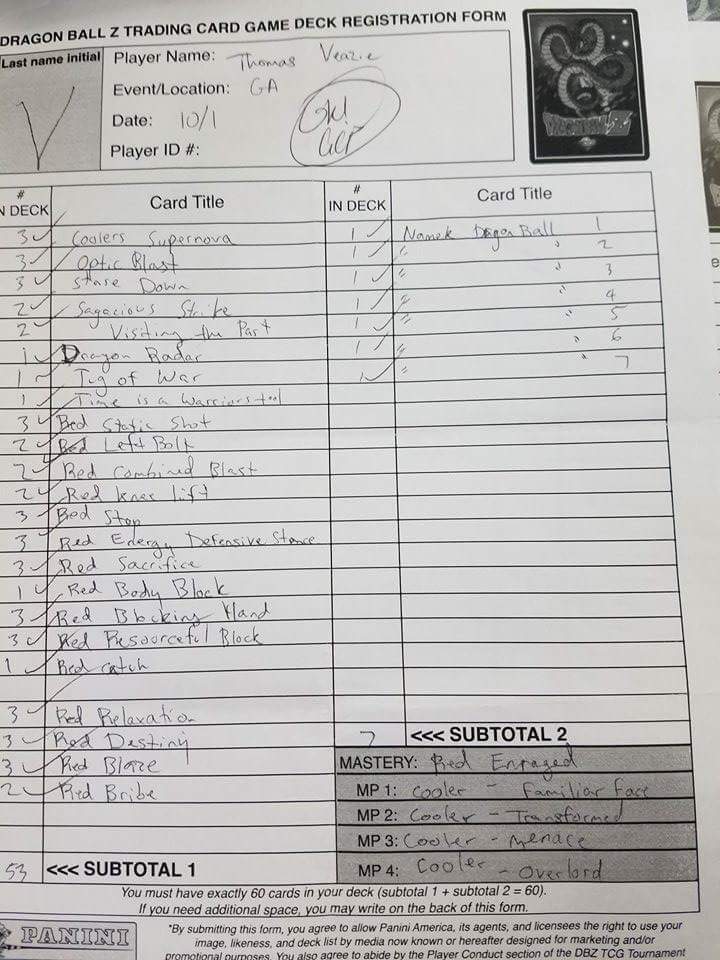 DRAGON BALL Z TRADING CARD GAME DECK REGISTRATION FORM
Last name initial
V
Player Name: Thomas Veazie
Event/Location: GA
Date: 10/1
Player ID #:
# IN DECK Card Title
3 Coolers Supernova
3 Optic Blast
3 Stare Down
2 Sagacious Strike
2 Visiting the Past
1 Dragon Radar
1 Tug of War
1 Time is a Warriors tool
3 Red Static Shot
2 Red Left Bolt
2 Red Combined Blast
2 Red knee lift
3 Red Stop
3 Red Energy Defensive Stance
3 Red Sacrifice
1 Red Body Block
3 Red Blocking Hand
3 Red Resourceful Block
1 Red catch
3 Red Relaxation
3 Red Destiny
3 Red Blaze
2 Red Bribe
53 <<< SUBTOTAL 1
# IN DECK Card Title
1 Namek Dragon Ball 1
1 " " 2
1 " " 3
1 " 4
1 " " 5
1 " " 6
1 " " 7
7 <<< SUBTOTAL 2
MASTERY: Red Enraged
MP 1: Cooler - Familiar Face
MP 2: Cooler - Transformed
MP 3: Cooler - Menace
MP 4: Cooler - Overlord
You must have exactly 60 cards in your deck (subtotal 1 + subtotal 2 = 60).
If you need additional space, you may write on the back of this form.
PANINI
*By submitting this form, you agree to allow Panini America, its agents, and licensees the right to use your
image, likeness, and deck list by media now known or hereafter designed for marketing and/or
promotional purposes. You also agree to abide by the Player Conduct section of the DBZ TCG Tournament